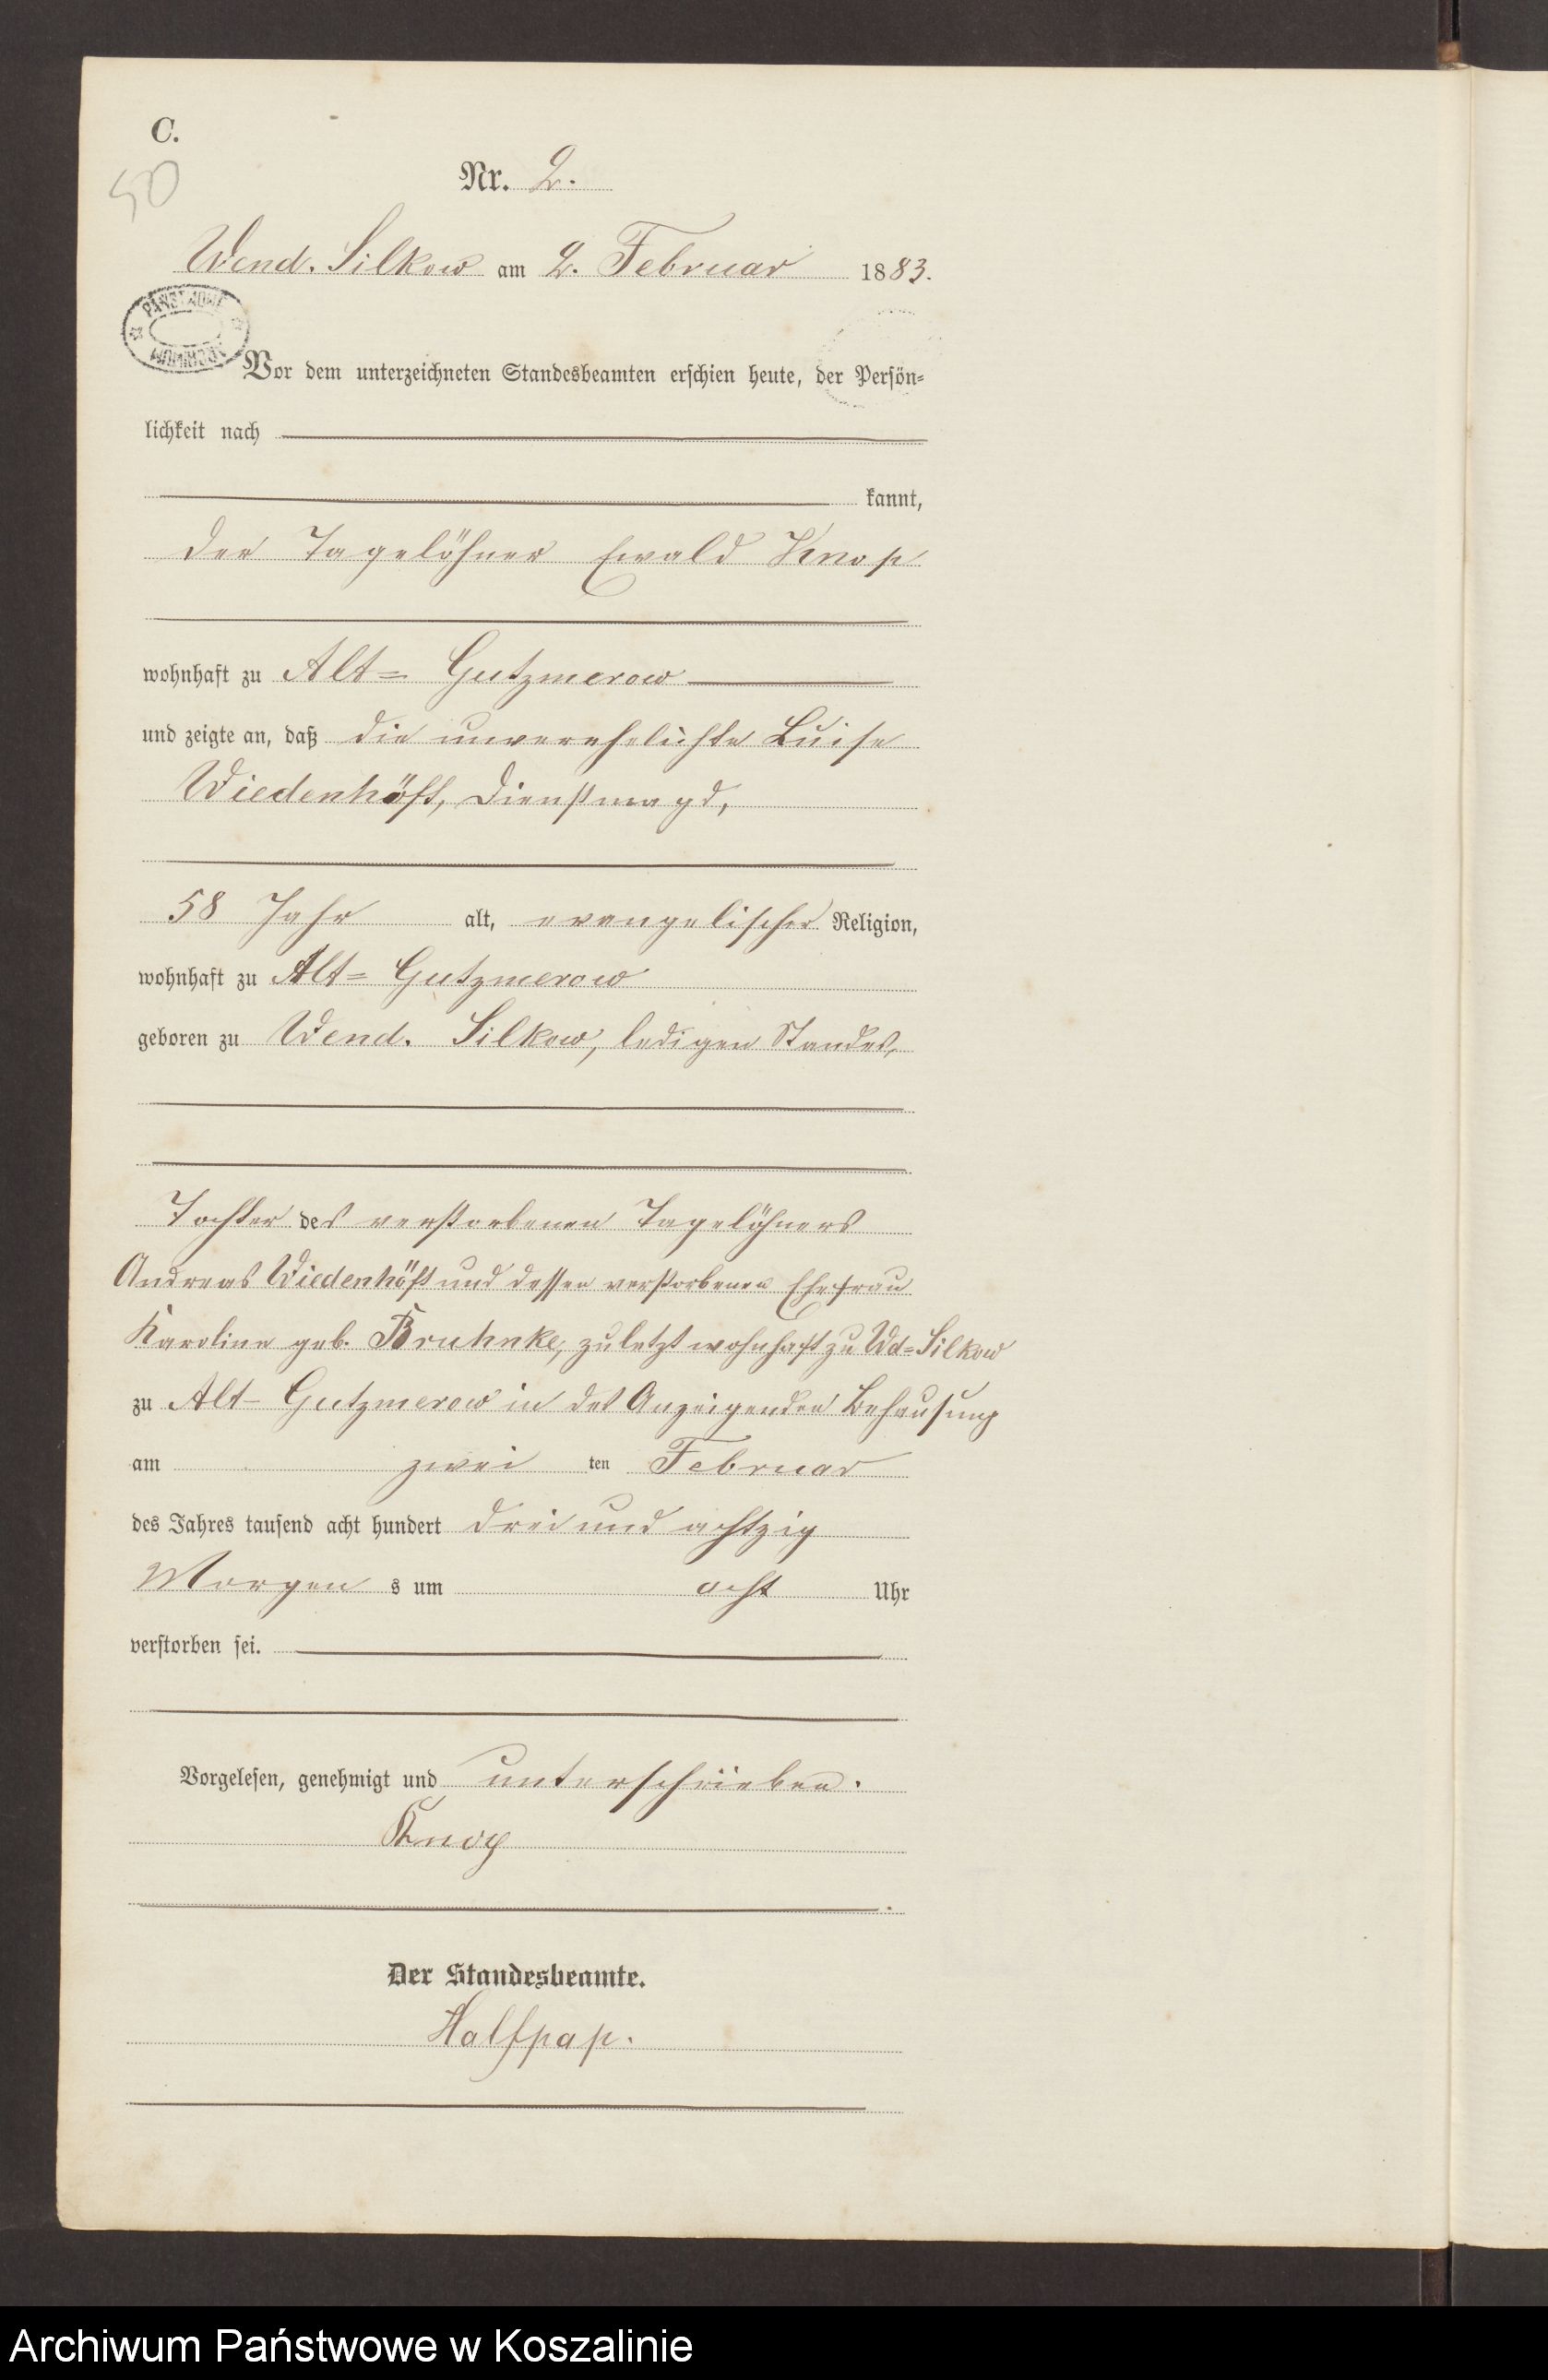 C.
50
Nr. 2.
Wend. Silkow am 2. Februar 1883.
PAŃSTWOWE
Vor dem unterzeichneten Standesbeamten erschien heute, der Persön-
lichkeit nach
kannt,
der Tagelöhner Ewald Knop
wohnhaft zu Alt= Gutzmerow
und zeigte an, daß die unverehelichte Luise
Wiedenhöft, Dienstmagd,
58 Jahr alt, evangelischer Religion,
wohnhaft zu Alt= Gutzmerow
geboren zu Wend. Silkow, ledigen Standes,
Tochter des verstorbenen Tagelöhners
Andreas Wiedenhöft und dessen verstorbenen Ehefrau
Karoline geb. Bruhnke, zuletzt wohnhaft zu Wd=Silkow
zu Alt- Gutzmerow in des Anzeigenden Behausung
am zwei ten Februar
des Jahres tausend acht hundert drei und achtzig
Morgen s um acht Uhr
verstorben sei.
Vorgelesen, genehmigt und unterschrieben.
Knop
Der Standesbeamte.
Halfpap.
Archiwum Państwowe w Koszalinie